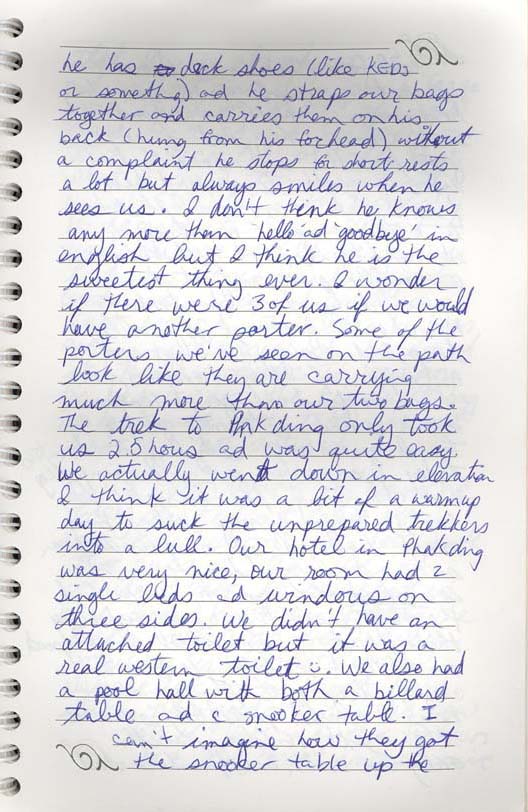 he has deck shoes (like KEDs
or somethg) ad he straps our bags
together and carries them on his
back (hung from his forhead) without
a complaint he stops for short rests
a lot but always smiles when he
sees us. I don't think he knows
any more them 'hello' ad 'goodbye' in
english but I think he is the
sweetest thing ever. I wonder
if there were 3 of us if we would
have another porter. Some of the
porters we've seen on the path
look like they are carrying
much more than our two bags.
The trek to Phkding only took
us 2.5 hous ad was quite easy.
We actually went down in elevation
I think it was a bit of a warmup
day to suck the unprepared trekkers
into a lull. Our hotel in Phakding
was very nice, our room had 2
single beds ad windows on
three sides. We didn't have an
attached toilet but it was a
real western toilet. We also had
a pool hall with both a billard
table ad a snooker table. I
can't imagine how they got
the snooker table up the